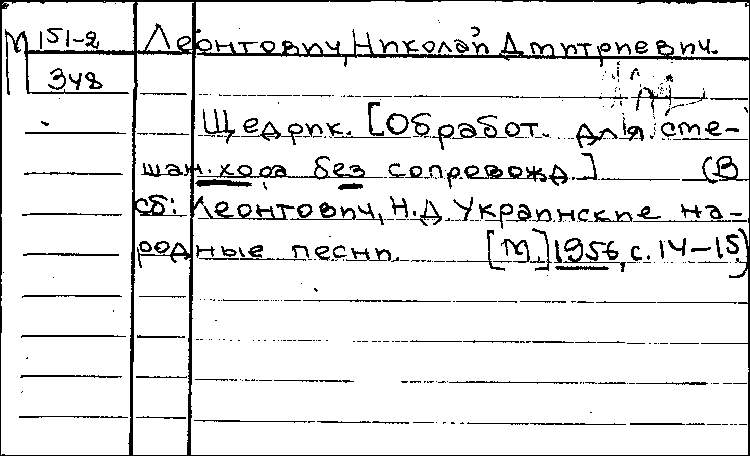 М 151-2 Леонтович, Николай Дмитриевич.
348
Щедрик. [Обработ. для сме-
шан. хора без сопровожд.] (В
сб: Леонтович, Н.Д. Украинские на-
родные песни. [М.] 1956, с. 14-15)